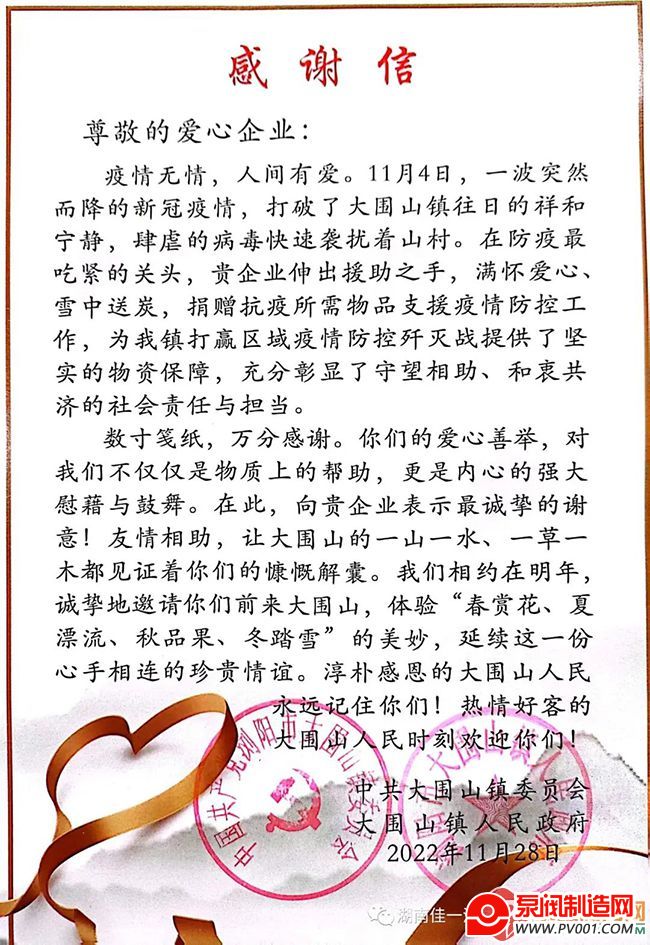 感谢信
尊敬的爱心企业：
疫情无情，人间有爱。11月4日，一波突然
而降的新冠疫情，打破了大围山镇往日的祥和
宁静，肆虐的病毒快速袭扰着山村。在防疫最
吃紧的关头，贵企业伸出援助之手，满怀爱心、
雪中送炭，捐赠抗疫所需物品支援疫情防控工
作，为我镇打赢区域疫情防控歼灭战提供了坚
实的物资保障，充分彰显了守望相助、和衷共
济的社会责任与担当。
数寸笺纸，万分感谢。你们的爱心善举，对
我们不仅仅是物质上的帮助，更是内心的强大
慰藉与鼓舞。在此，向贵企业表示最诚挚的谢
意！友情相助，让大围山的一山一水、一草一
木都见证着你们的慷慨解囊。我们相约在明年，
诚挚地邀请你们前来大围山，体验“春赏花、夏
漂流、秋品果、冬踏雪”的美妙，延续这一份
心手相连的珍贵情谊。淳朴感恩的大围山人民
永远记住你们！热情好客的
大围山人民时刻欢迎你们！
中共大围山镇委员会
大围山镇人民政府
2022年11月28日
中国共产党浏阳市大围山镇委员会
湖南佳一
泵阀制造网
WWW.PV001.COM